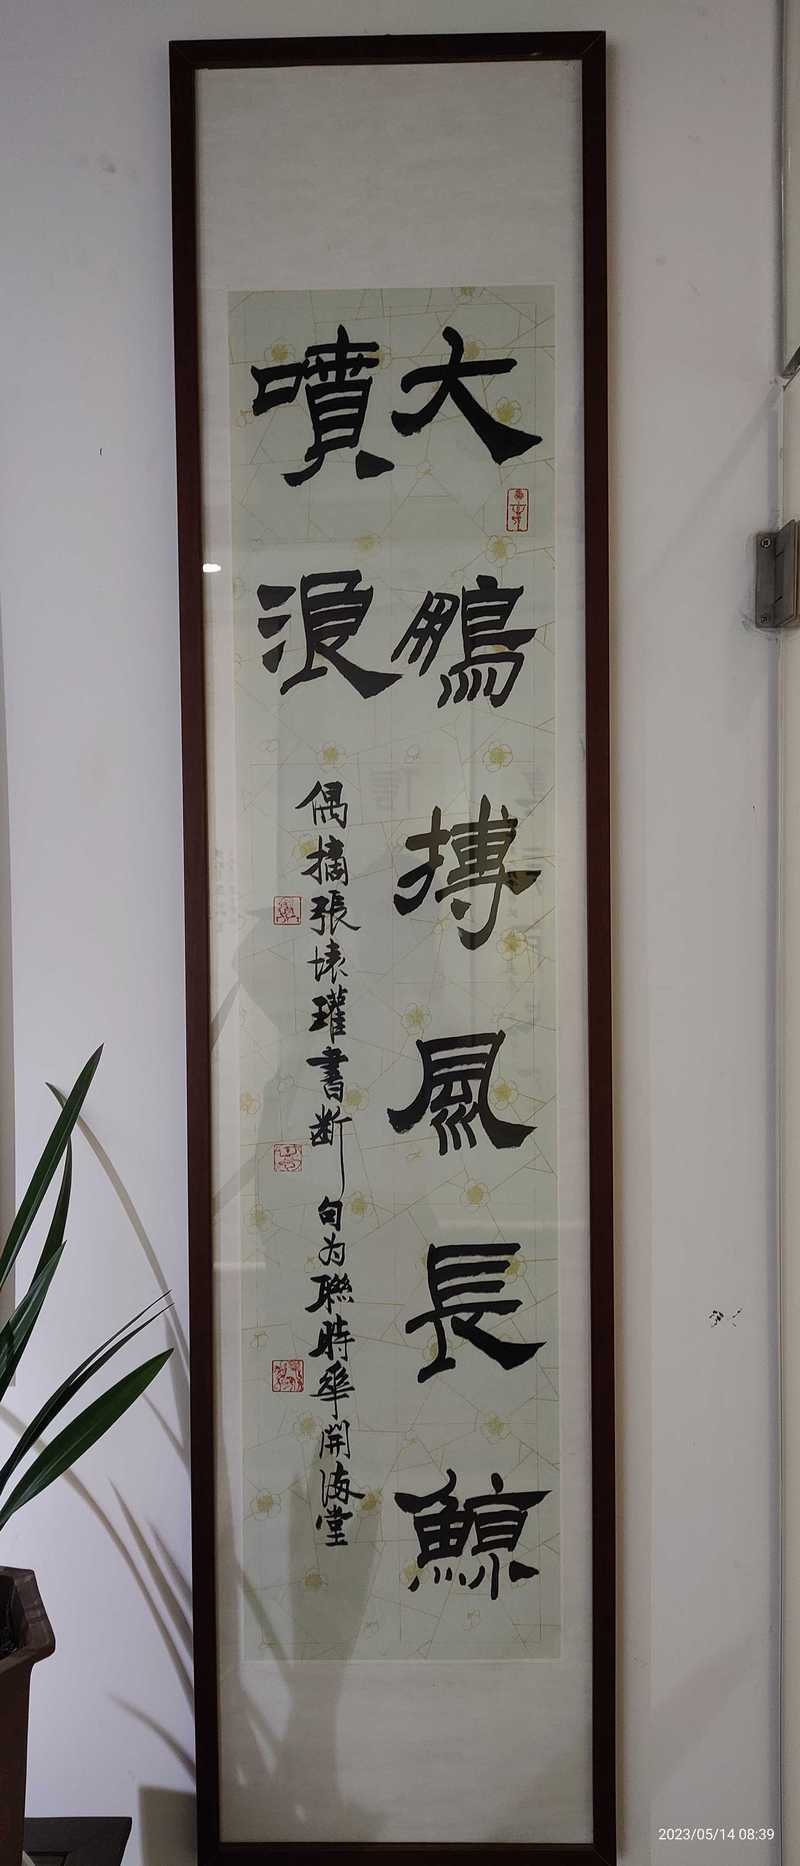 大鵬搏風長鯨
噴浪
偶摘張懷瓘書断句为聯時華開海堂
2023/05/14 08:39